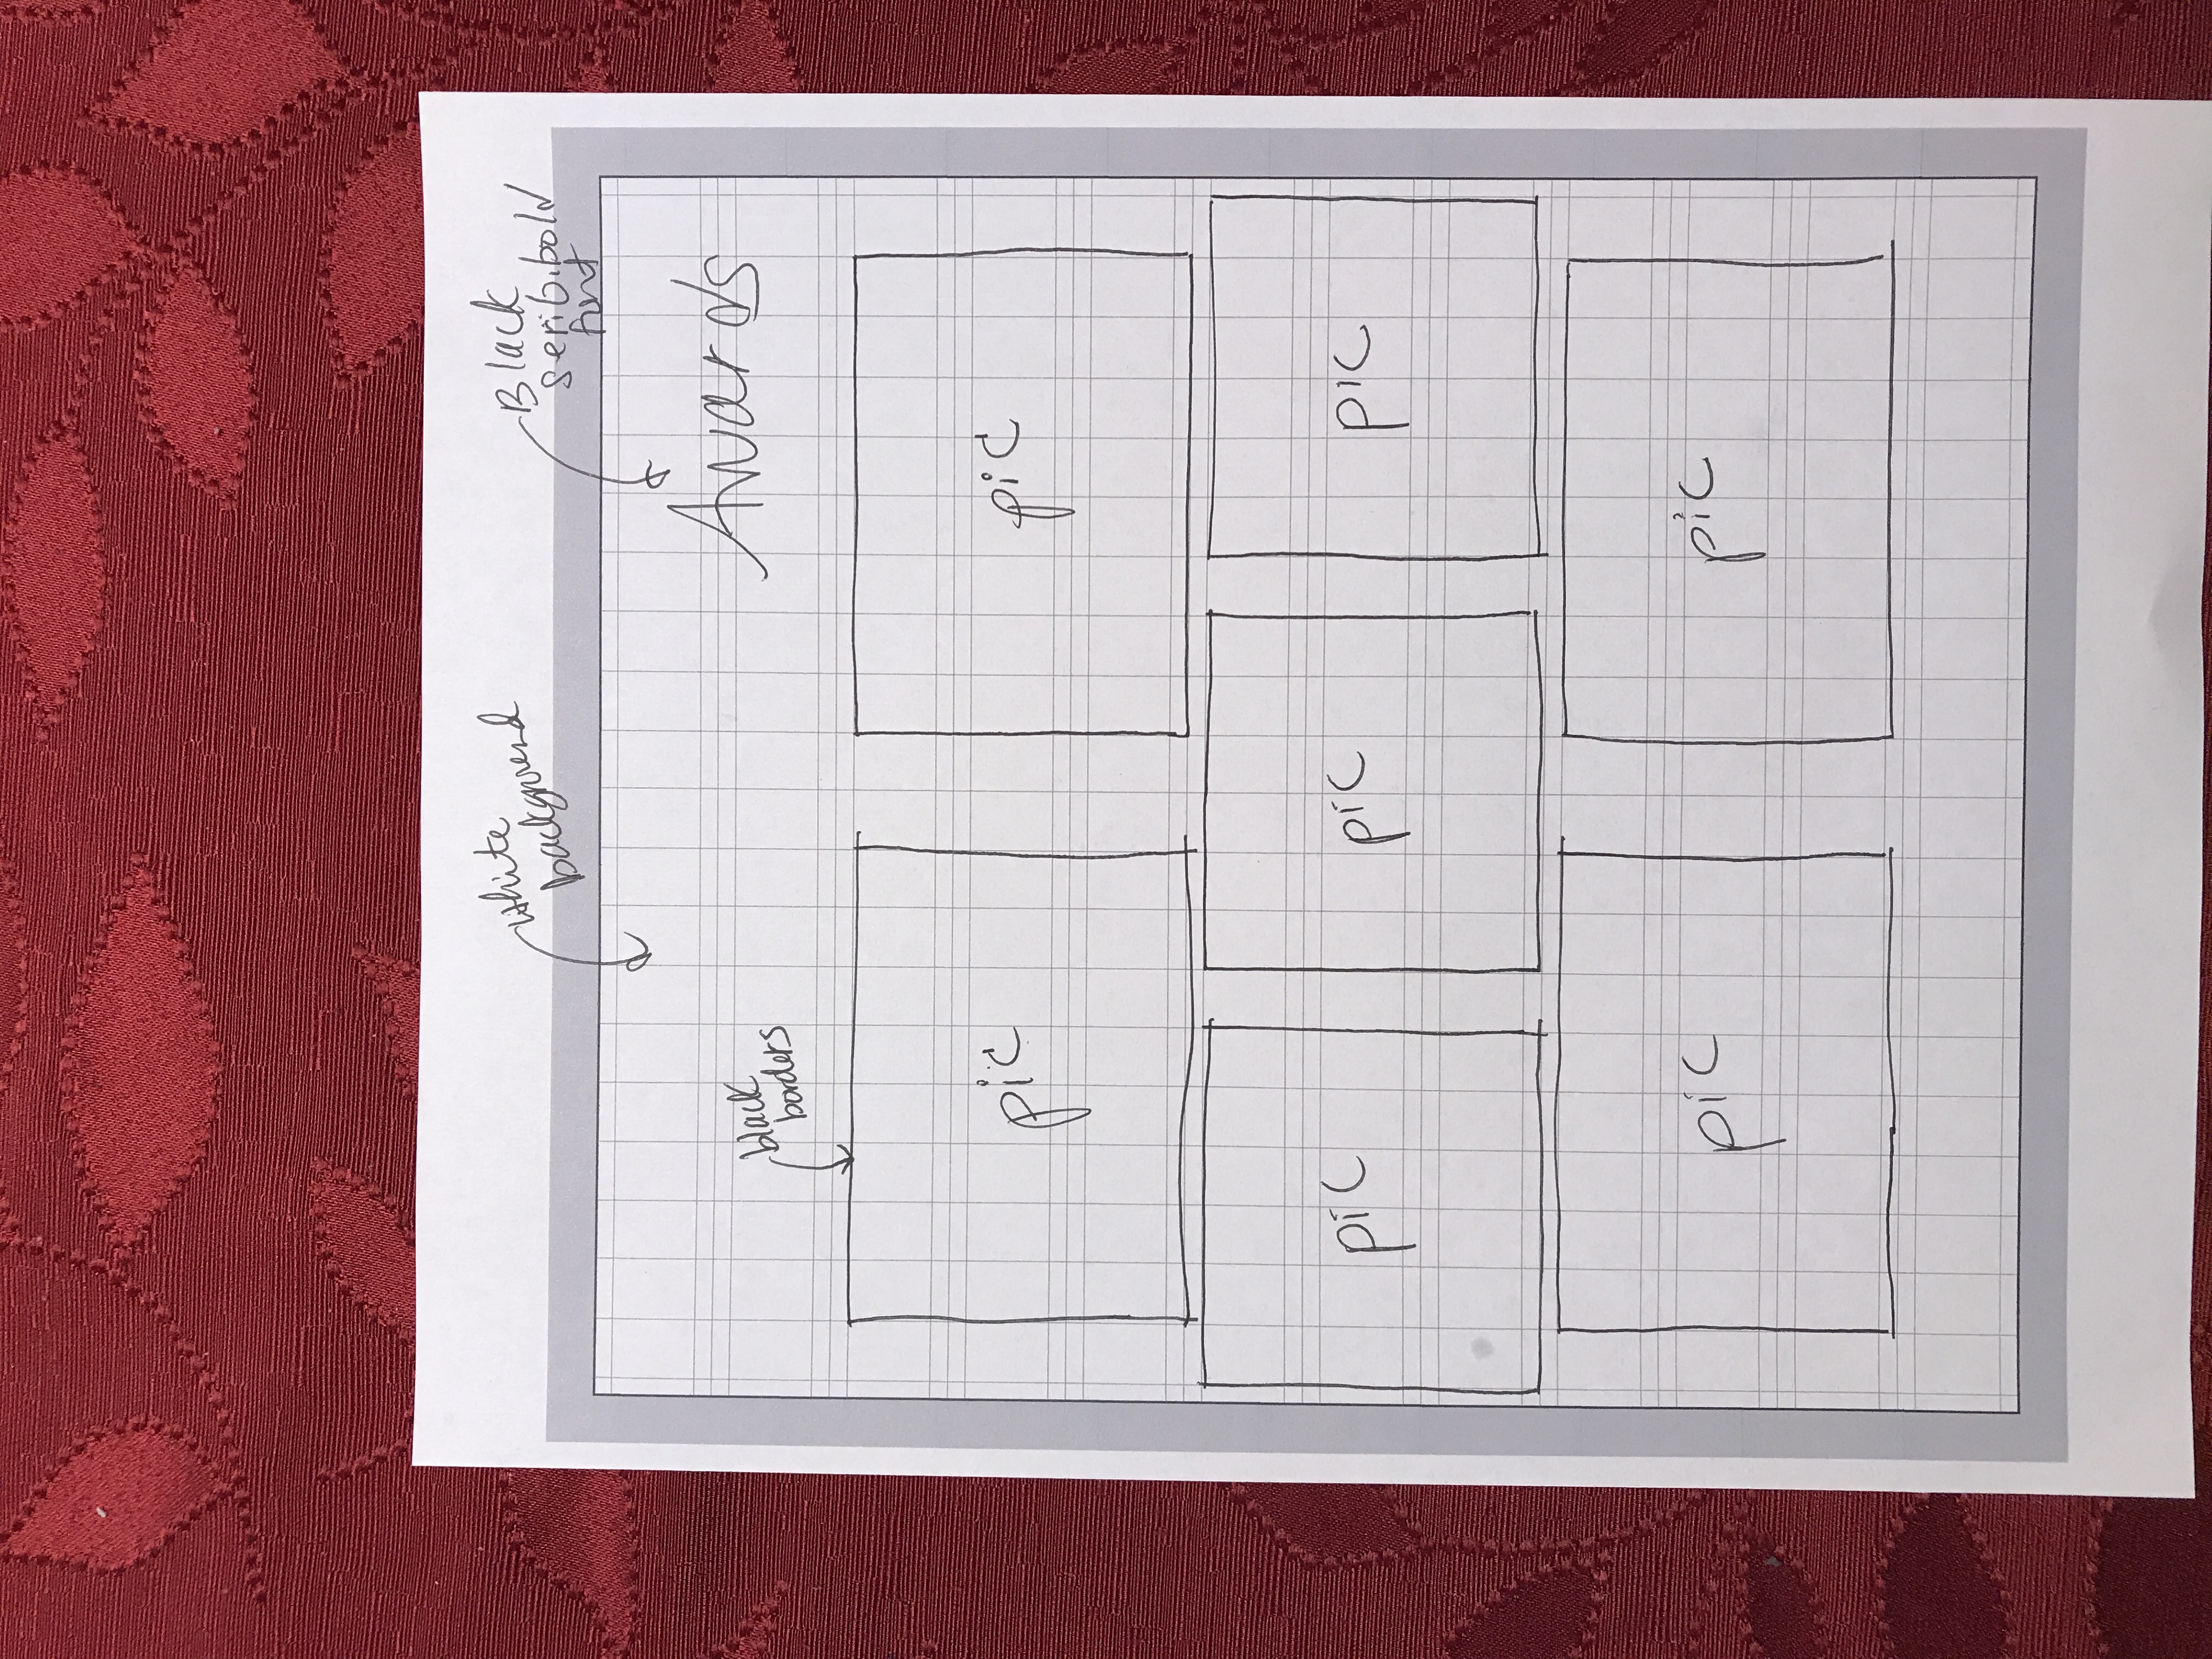 white
background
Black
serib.bold
font
Awards
black
borders
pic
pic
pic
pic
pic
pic
pic